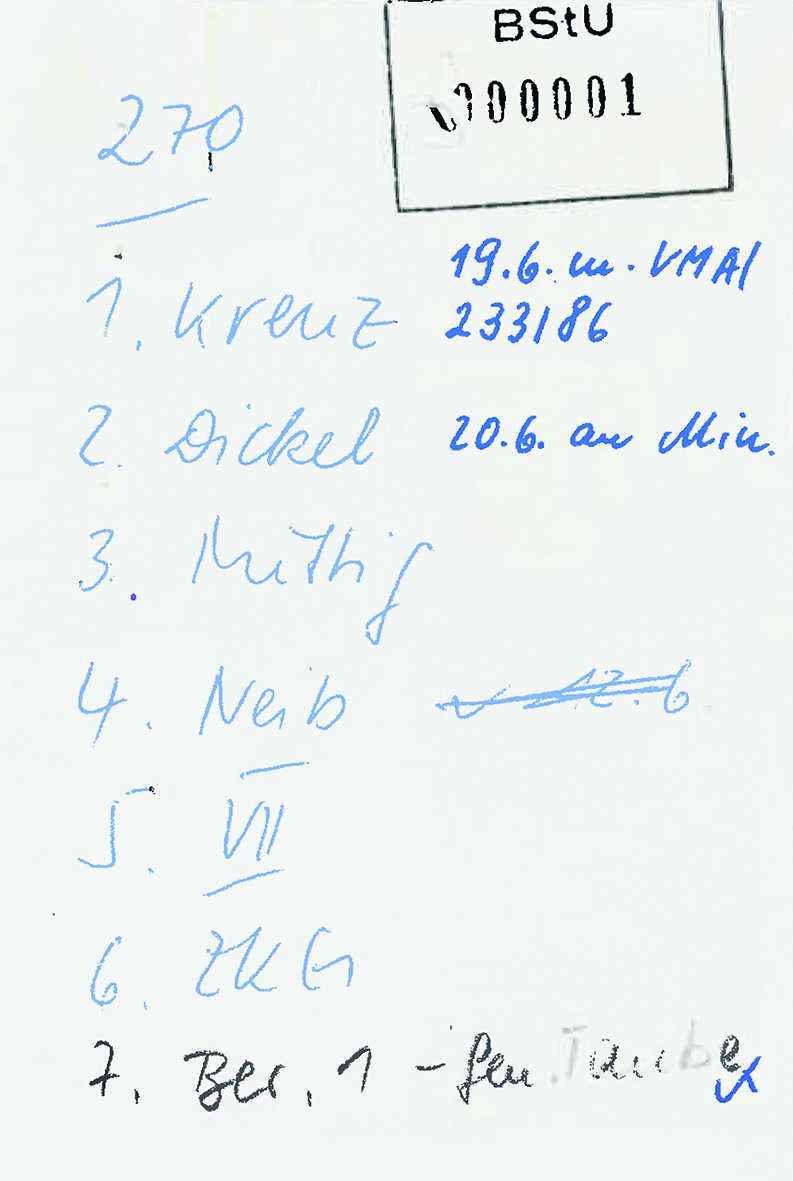 BStU
000001
270
1. Krenz 19.6. m. VMA/
233/86
2. Dickel 20.6. an Min.
3. Mittig
4. Neib 12.6
5. VII
6. ZKG
7. Ber. 1 - Gen. Taube